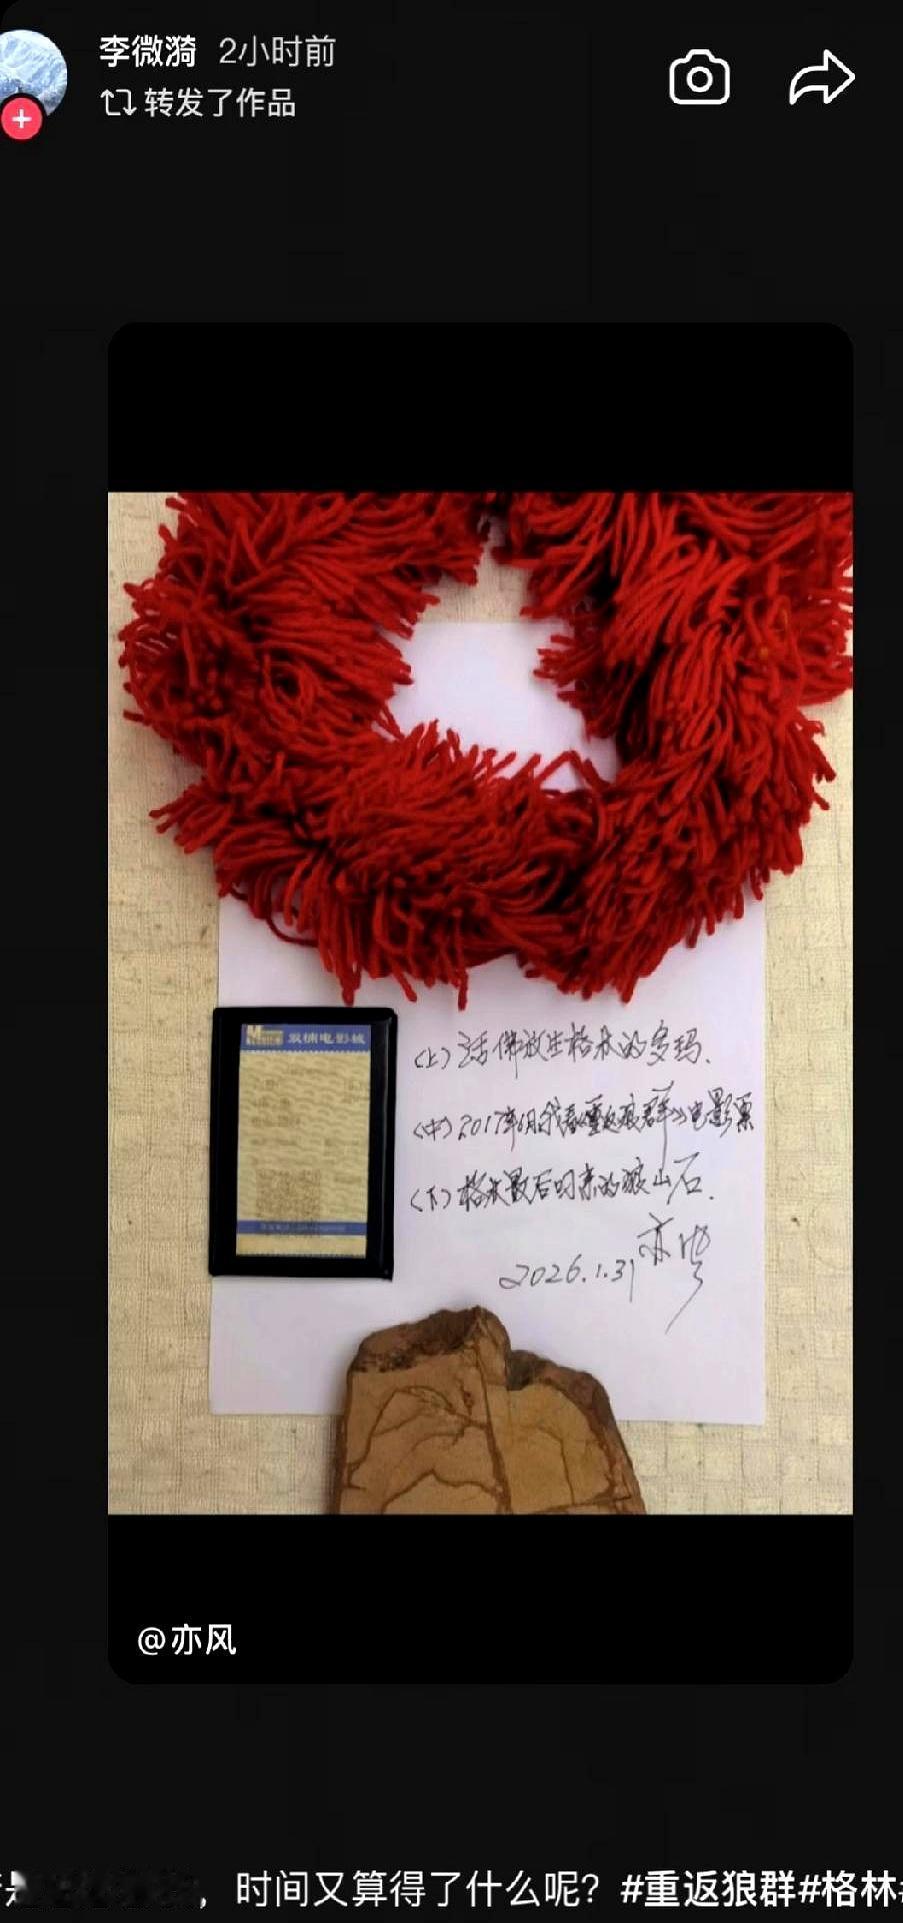 李微漪 2小时前
转发了作品
双楠电影城
(上)活佛放生格林的多玛.
(中)2017年6月《重返狼群》电影票
(下)格林最后叼来的狼山石.
亦风
2026.1.31
@亦风
，时间又算得了什么呢？#重返狼群#格林